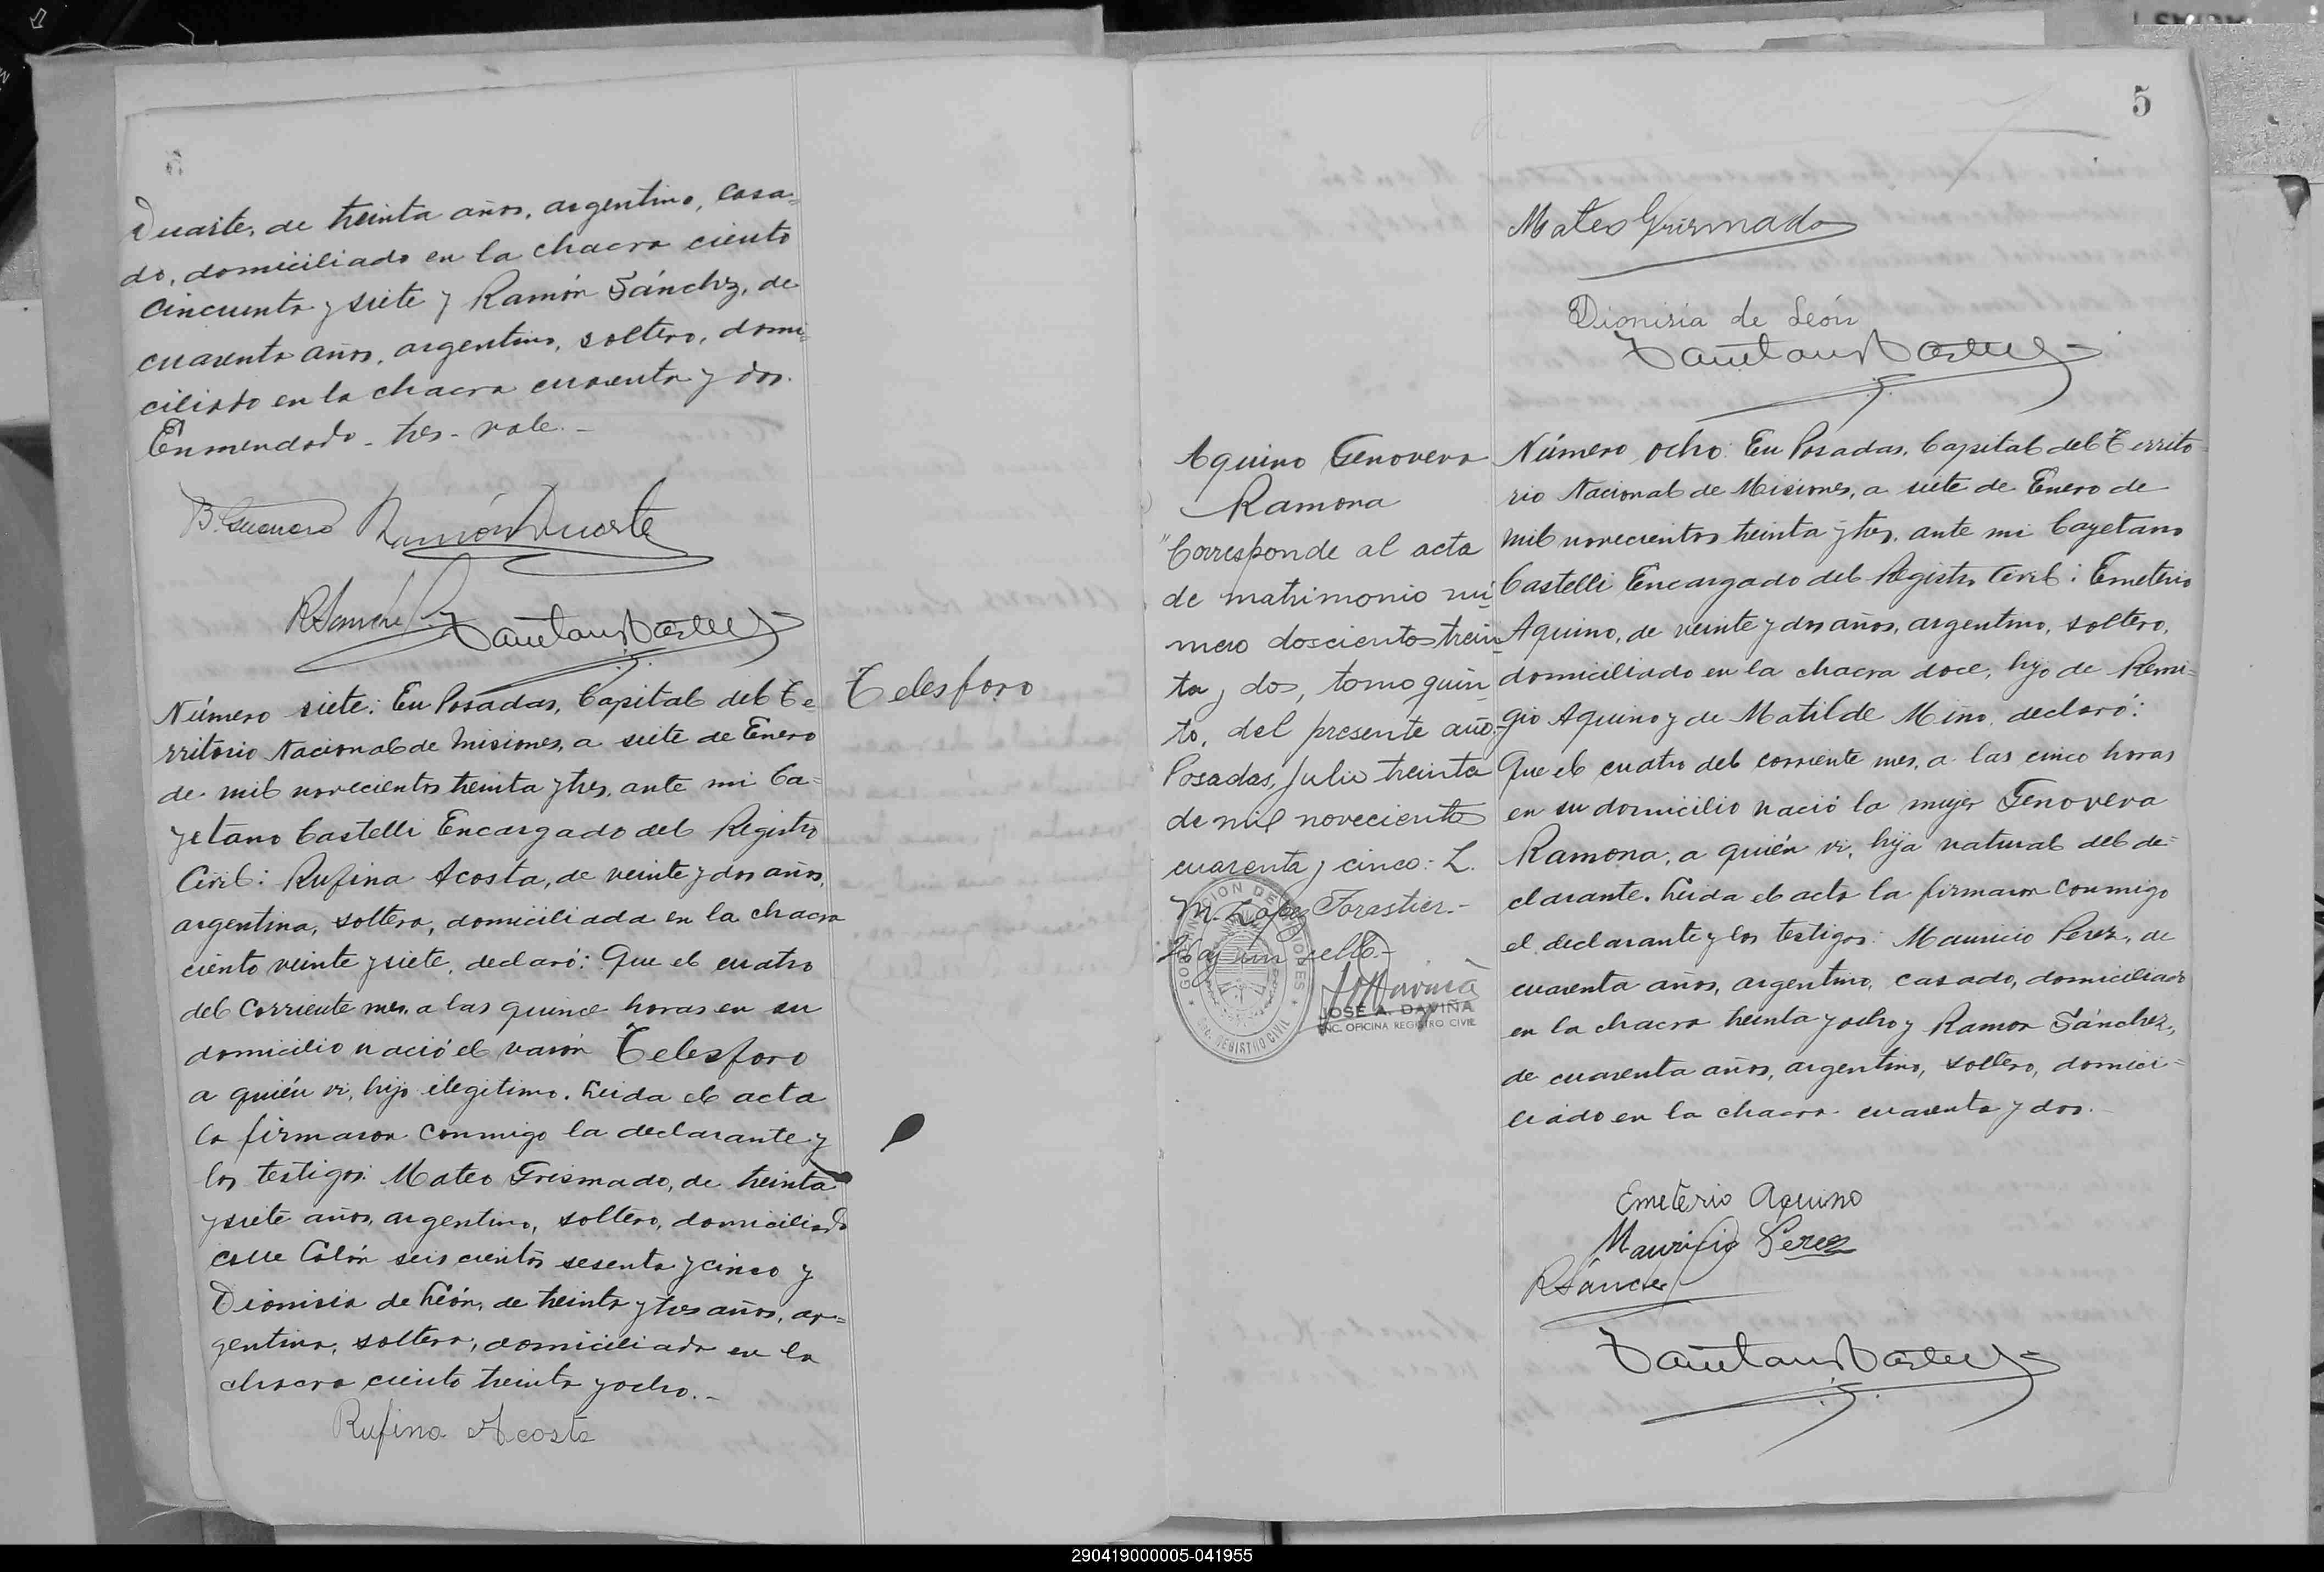 Duarte, de treinta años, argentino, casa=
do, domiciliado en la chacra ciento
cincuenta y siete y Ramón Sánchez, de
cuarenta años, argentino, soltero, domi=
ciliado en la chacra cuarenta y dos.
Enmendado - tres - vale.-
B. Guerrero Ramón Duarte
RSanchez
Número siete: En Posadas, Capital del Te=
rritorio Nacional de Misiones, a siete de Enero
de mil novecientos treinta y tres, ante mi Ca=
yetano Castelli Encargado del Registro
Civil: Rufina Acosta, de veinte y dos años,
argentina, soltera, domiciliada en la chacra
ciento veinte y siete, declaró: Que el cuatro
del corriente mes, a las quince horas en su
domicilio nació el varón Telesforo
a quién vi, hijo ilegitimo. Leida el acta
la firmaron conmigo la declarante y
los testigos: Mateo Grismado, de treinta
y siete años, argentino, soltero, domiciliado
calle Colón seis cientos sesenta y cinco y
Dionisia de León, de treinta y tres años, ar=
gentina, soltera, domiciliada en la
chacra ciento treinta y ocho.-
Rufina Acosta
Telesforo
5
Mateo Grismado
Dionisia de León
Aquino Genoveva
Ramona
"Corresponde al acta
de matrimonio nú-
mero doscientos trein-
ta y dos, tomo quin-
to, del presente año.-
Posadas, Julio treinta
de mil novecientos
cuarenta y cinco: L.
M. Lopez Forastier.-
Hay un sello.-
JOSÉ A. DAVIÑA
ENC. OFICINA REGISTRO CIVIL
Número ocho: En Posadas, Capital del Territo-
rio Nacional de Misiones, a siete de Enero de
mil novecientos treinta y tres, ante mi Cayetano
Castelli Encargado del Registro Civil: Emeterio
Aquino, de veinte y dos años, argentino, soltero,
domiciliado en la chacra doce, hijo de Remi=
gio Aquino y de Matilde Miño, declaró:
Que el cuatro del corriente mes, a las cinco horas
en su domicilio nació la mujer Genoveva
Ramona, a quién vi, hija natural del de=
clarante. Leida el acta la firmaron conmigo
el declarante y los testigos: Mauricio Perez, de
cuarenta años, argentino, casado, domiciliado
en la chacra treinta y ocho y Ramon Sánchez,
de cuarenta años, argentino, soltero, domici=
liado en la chacra cuarenta y dos.-
Emeterio Aquino
Mauricio Perez
RSánchez
290419000005-041955